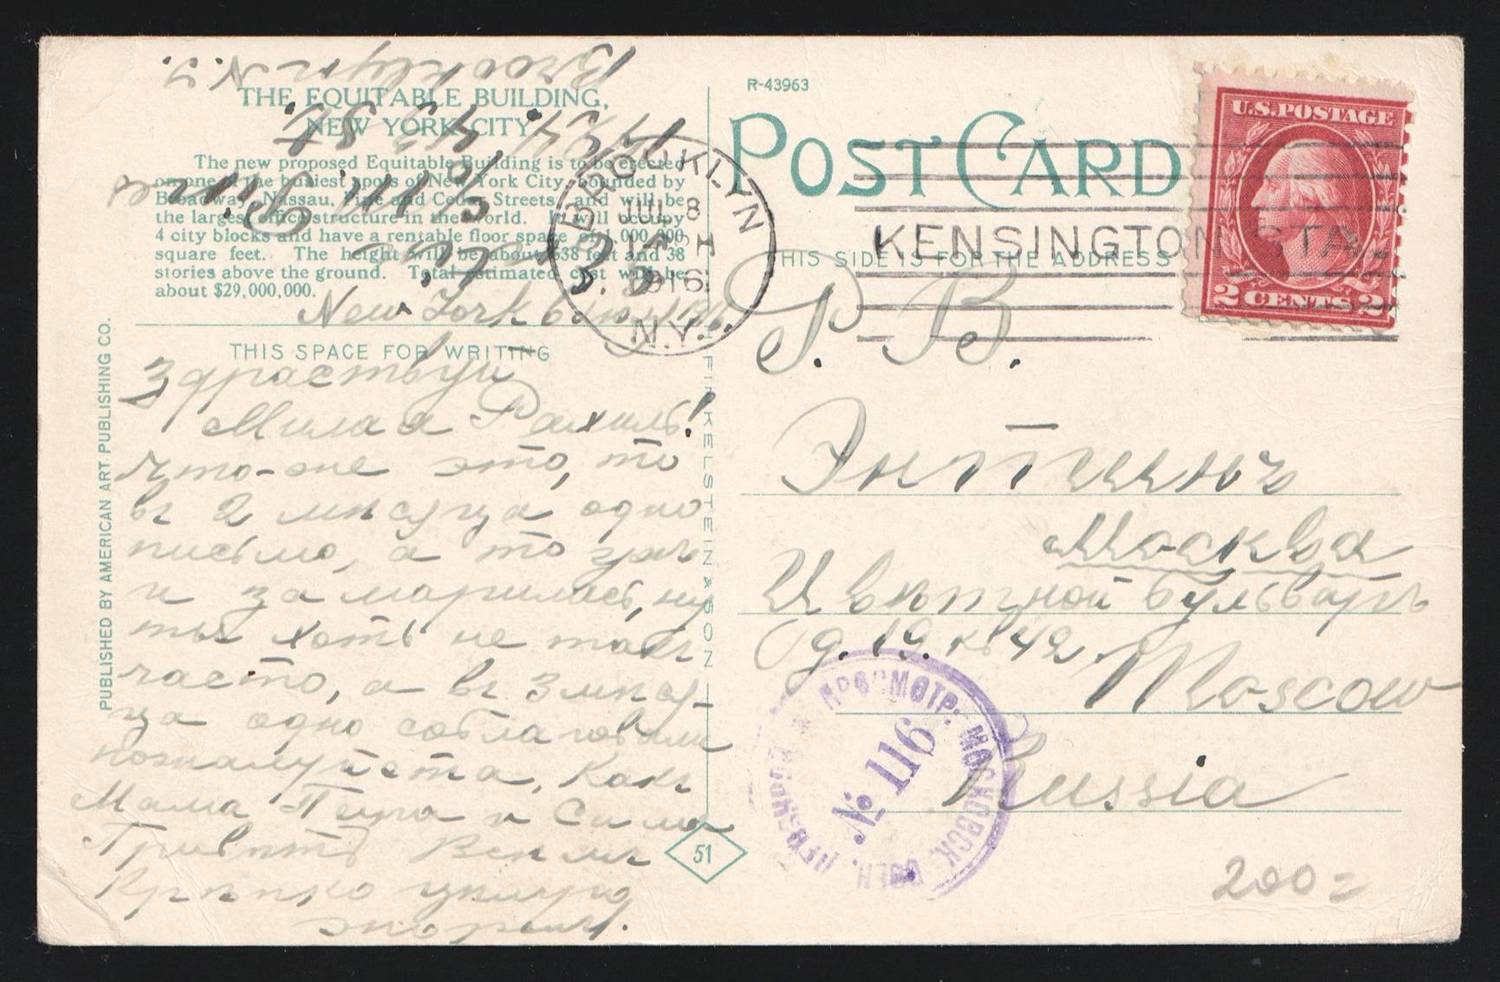 THE EQUITABLE BUILDING,
NEW YORK CITY.
The new proposed Equitable Building is to be erected
on one of the busiest spots of New York City, bounded by
Broadway, Nassau, Pine and Cedar Streets, and will be
the largest office structure in the world. It will occupy
4 city blocks and have a rentable floor space of 1,000,000
square feet. The height will be about 538 feet and 38
stories above the ground. Total estimated cost will be
about $29,000,000.
Brooklyn N.Y.
1424 43 St
New York 6
THIS SPACE FOR WRITING
Здраствуй
Милая Рахиль!
Что-же это, то
въ 2 мѣсяца одно
письмо, а то
и заморилась, ну
ты хоть не такъ
часто, а въ 3 мѣся-
ца одно
пожалуйста, Какъ
Мама Петя и Сима
Привѣтъ Всѣмъ
Крѣпко цѣлую
PUBLISHED BY AMERICAN ART PUBLISHING CO.
FINKELSTEIN & SON
51
R-43963
POST CARD
THIS SIDE IS FOR THE ADDRESS
BROOKLYN
JUL 8
1916
N.Y.
KENSINGTON STA.
U.S. POSTAGE
2 CENTS 2
P. B.
Энтинъ
Москва
Цвѣтной бульваръ
д. 19. кв 42.
Moscow
Russia
ПРОСМОТР. МОСКОВСК. ВОЕН. ЦЕНЗУРОЙ
№ 116
200=